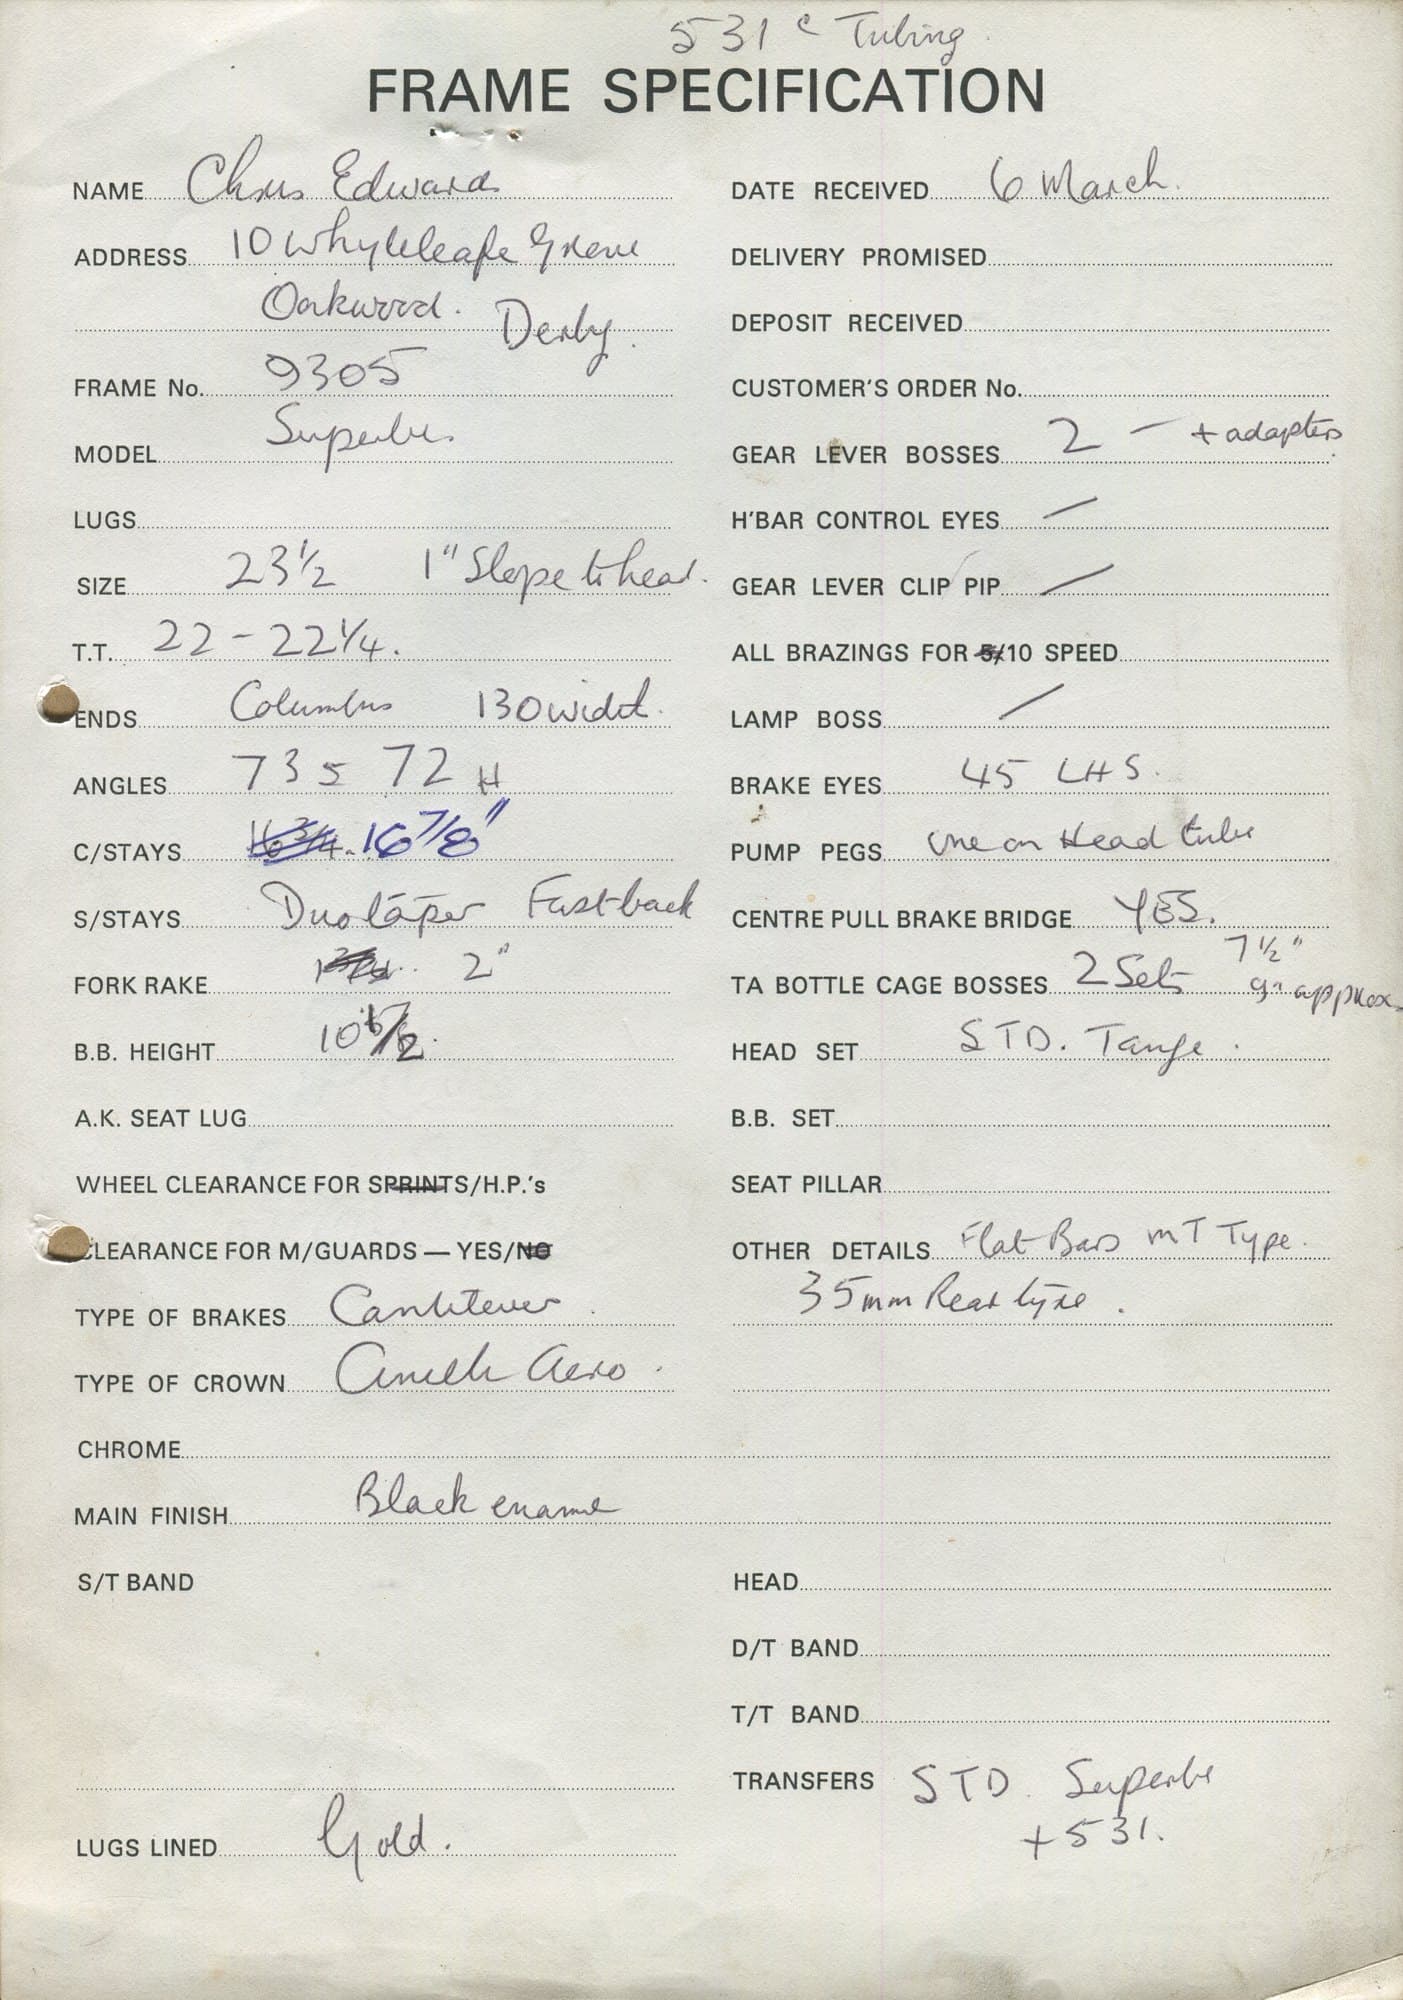 531 c Tubing
FRAME SPECIFICATION
NAME Chris Edwards
ADDRESS 10 Whyteleafe Grove
Oakwood. Derby.
FRAME No. 9305
MODEL Superbe
LUGS
SIZE 23 1/2 1" Slope to head.
T.T. 22 - 22 1/4.
ENDS Columbus 130 width.
ANGLES 73 S 72 H
C/STAYS 16 3/4. 16 7/8"
S/STAYS Duo taper Fastback
FORK RAKE 2"
B.B. HEIGHT 10 1/2.
A.K. SEAT LUG
WHEEL CLEARANCE FOR SPRINTS/H.P.'s
CLEARANCE FOR M/GUARDS — YES/NO
TYPE OF BRAKES Cantilever.
TYPE OF CROWN Cinelli Aero.
CHROME
MAIN FINISH Black enamel
S/T BAND
LUGS LINED Gold.
DATE RECEIVED 6 March.
DELIVERY PROMISED
DEPOSIT RECEIVED
CUSTOMER'S ORDER No.
GEAR LEVER BOSSES 2 — + adapters
H'BAR CONTROL EYES /
GEAR LEVER CLIP PIP /
ALL BRAZINGS FOR 5/10 SPEED
LAMP BOSS /
BRAKE EYES 45 LHS.
PUMP PEGS one on Head tube
CENTRE PULL BRAKE BRIDGE YES.
TA BOTTLE CAGE BOSSES 2 Sets 7 1/2"
9" approx
HEAD SET STD. Tange.
B.B. SET
SEAT PILLAR
OTHER DETAILS Flat Bars MT Type.
35mm Rear tyre.
HEAD
D/T BAND
T/T BAND
TRANSFERS STD. Superbe
+ 531.